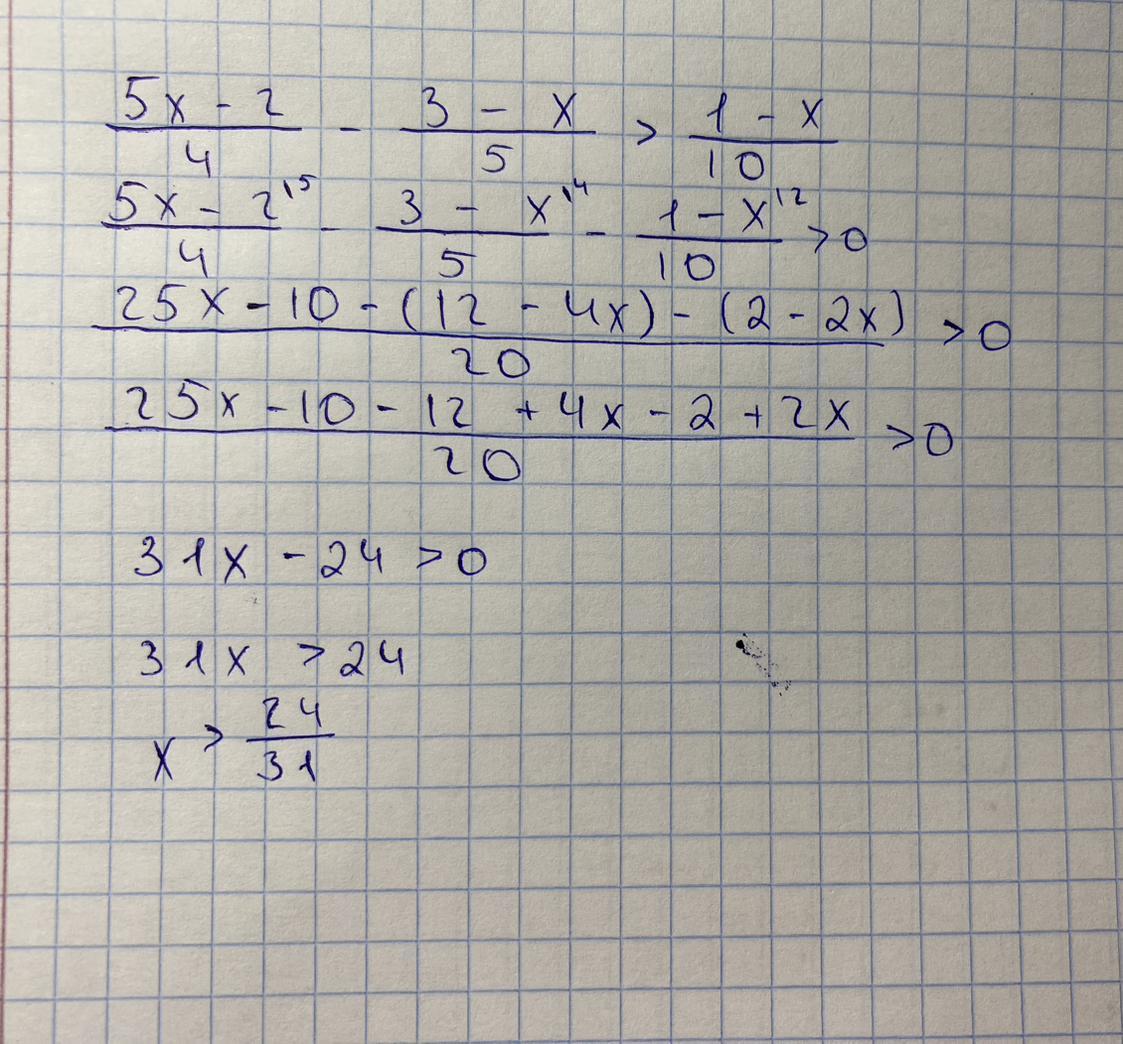 (5x - 2)/4 - (3 - x)/5 > (1 - x)/10
(5x - 2)/4 ⁽⁵ - (3 - x)/5 ⁽⁴ - (1 - x)/10 ⁽² > 0
(25x - 10 - (12 - 4x) - (2 - 2x))/20 > 0
(25x - 10 - 12 + 4x - 2 + 2x)/20 > 0
31x - 24 > 0
31x > 24
x > 24/31